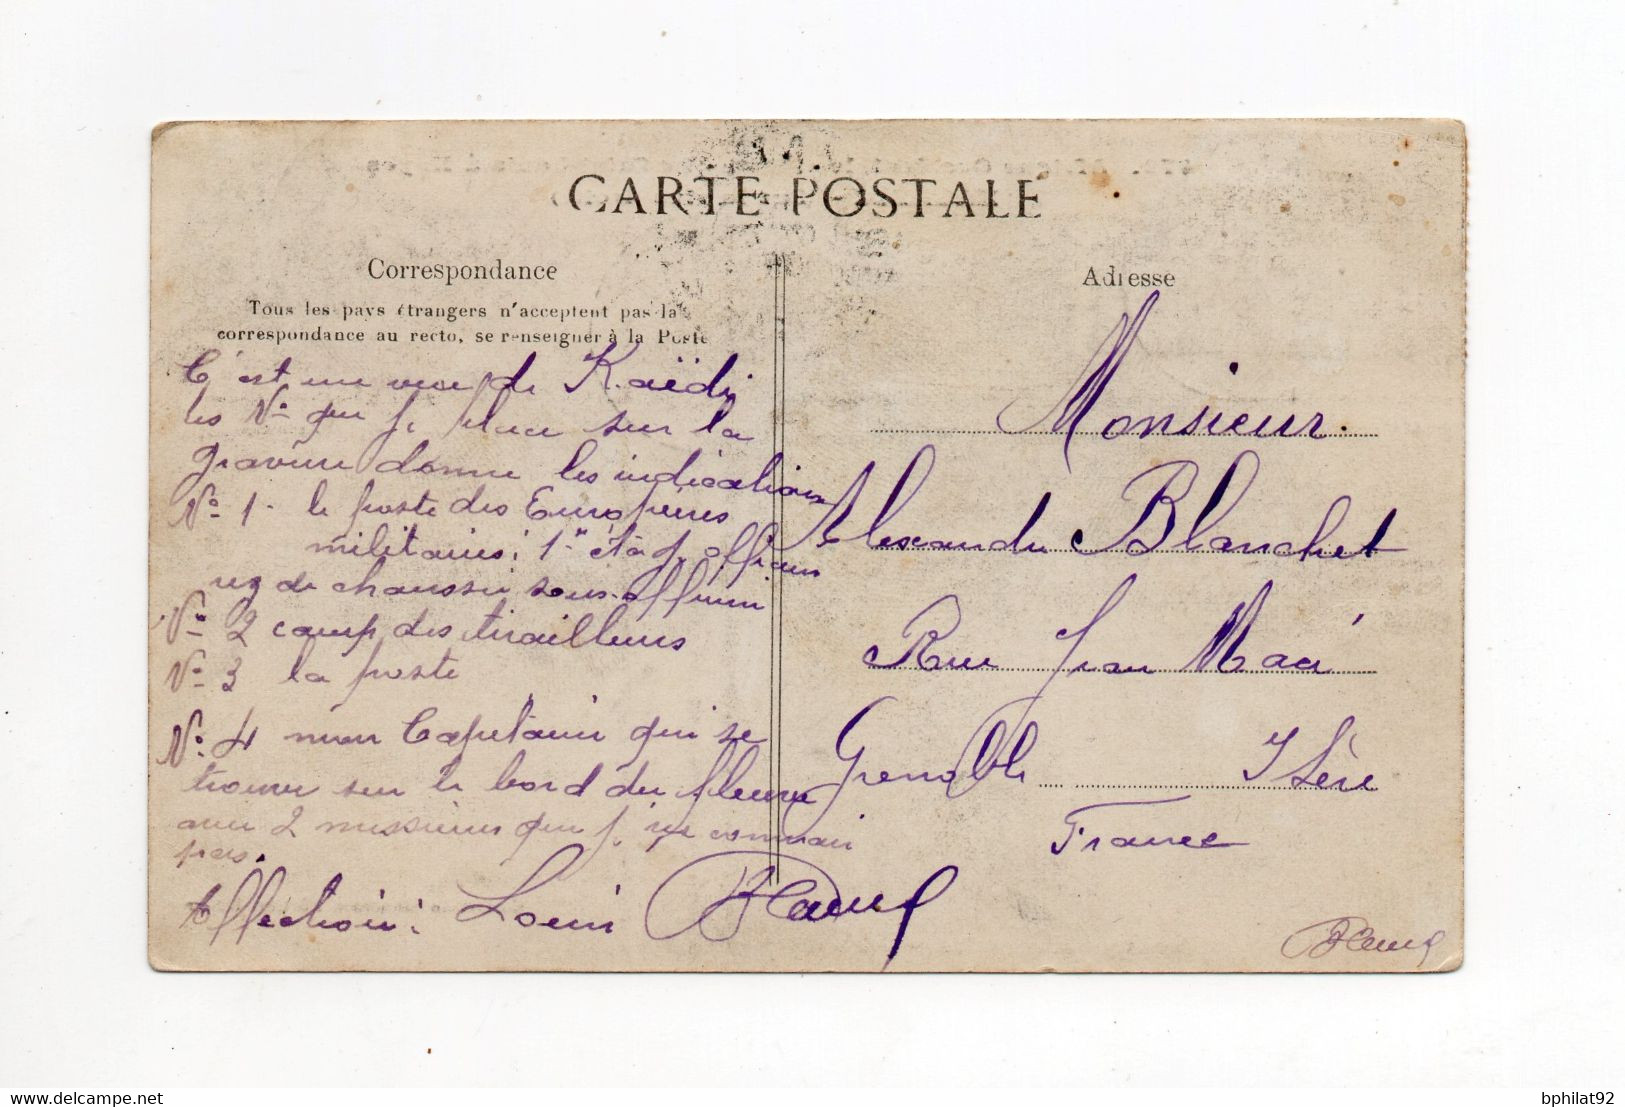 CARTE POSTALE
Correspondance
Tous les pays étrangers n'acceptent pas la
correspondance au recto, se renseigner à la Poste
C'est une vue de Kaëdi
les No que je place sur la
gravure donne les indications
No 1 - le poste des Européens
militaires: 1er étage officiers
rez de chaussée sous-officiers
No 2 camp des tirailleurs
No 3 la poste
No 4 mon Capitaine qui se
trouve sur le bord du fleuve
avec 2 messieurs que je ne connais
pas.
Affection: Louis
Adresse
Monsieur.
Alexandre Blanchet
Rue Jean Macé
Grenoble Isère
France
bphilat92